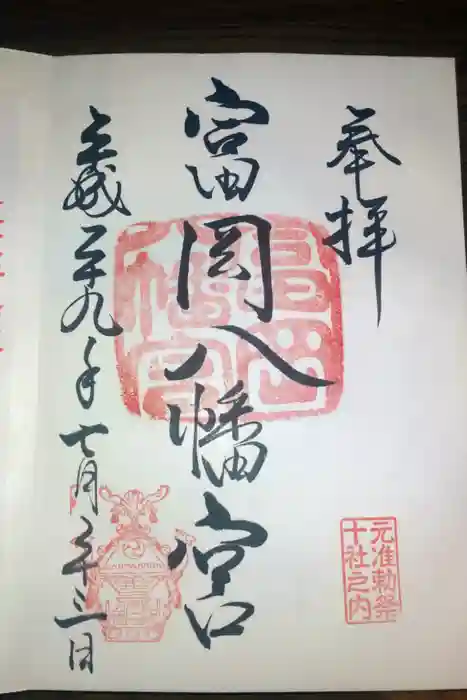 奉拝
富岡八幡宮
平成二十九年七月二十三日
元准勅祭
十社之内